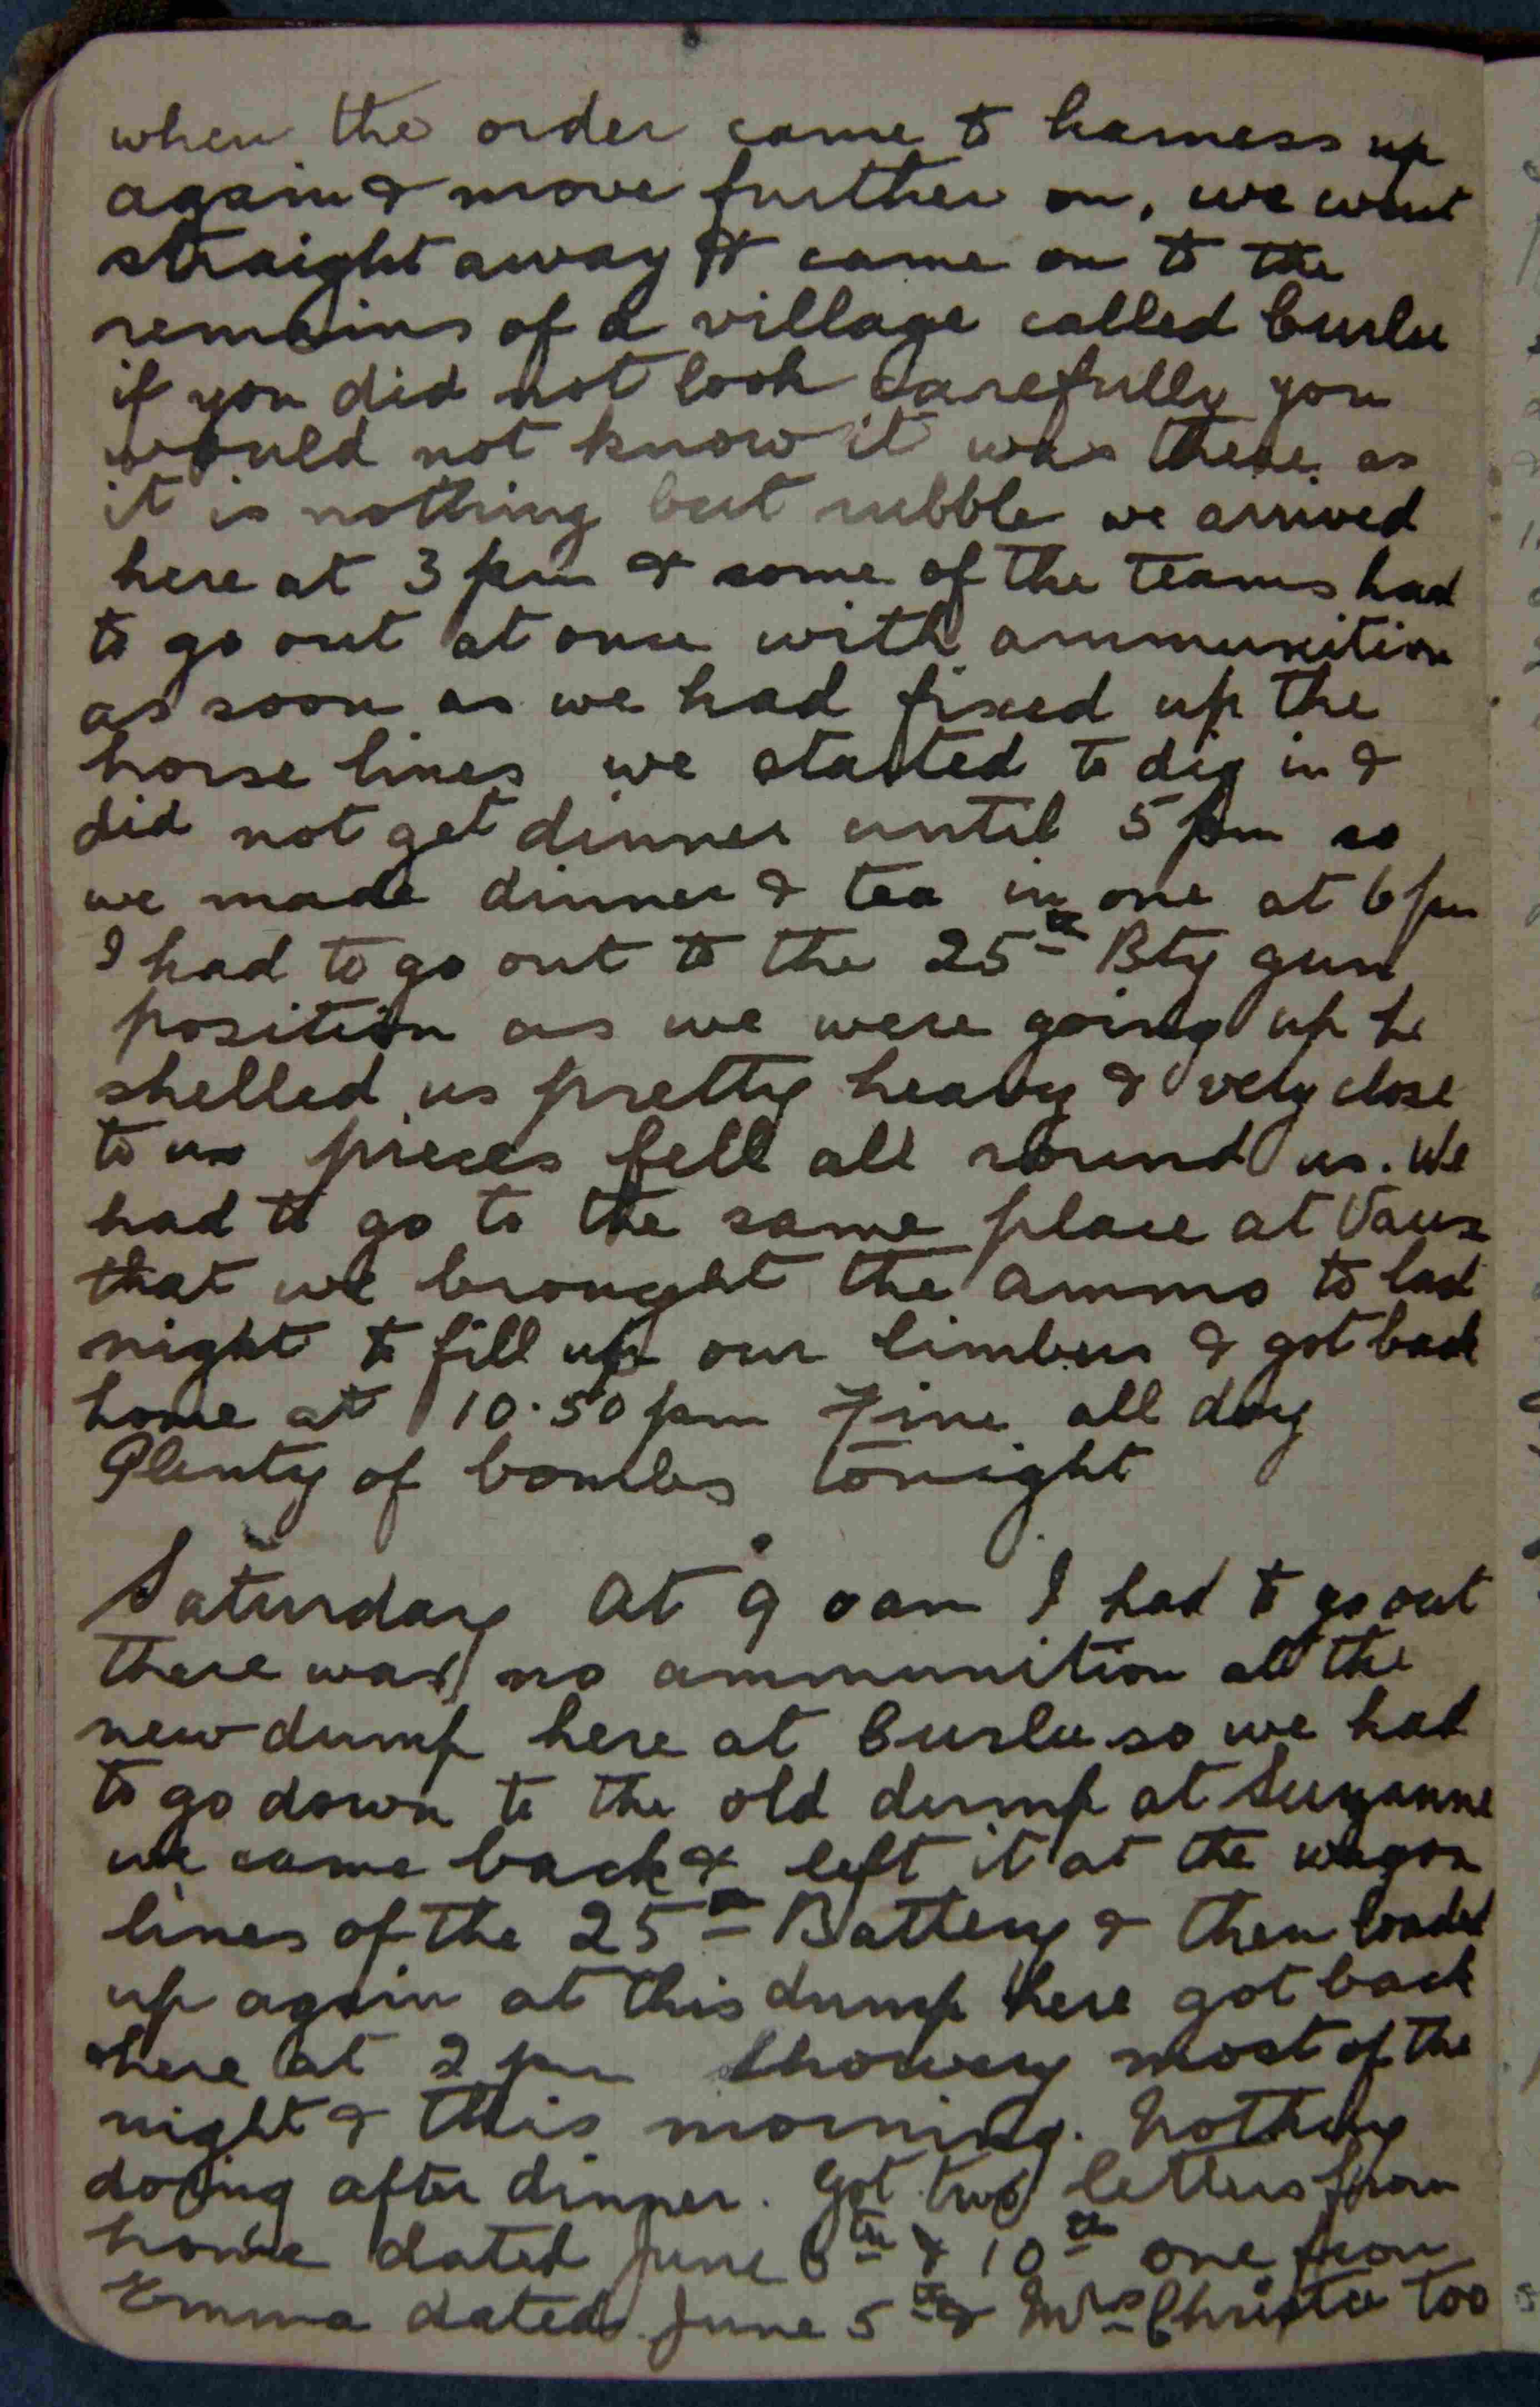 when the order came to harness up
again & move further on, we went
straight away & came on to the
remains of a village called Curlu
if you did not look carefully you
would not know it was there as
it is nothing but rubble we arrived
here at 3 pm & some of the teams had
to go out at once with ammunition
as soon as we had fixed up the
horse lines we started to dig in &
did not get dinner until 5 pm so
we made dinner & tea in one at 6 pm
I had to go out to the 25th Bty gun
position as we were going up he
shelled us pretty heavy & very close
to us pieces fell all round us. We
had to go to the same place at Vaux
that we brought the ammo to last
night to fill up our limbers & got back
home at 10.50 pm Fine all day
Plenty of bombs tonight
Saturday at 9 oam I had to go out
there was no ammunition at the
new dump here at Curlu so we had
to go down to the old dump at Suzanne
we came back & left it at the wagon
lines of the 25th Battery & then loaded
up again at this dump here got back
here at 2 pm Showery most of the
night & this morning. Nothing
doing after dinner. Got two letters from
home dated June 6th & 10th one from
Emma dated June 5th & Mrs Christie too